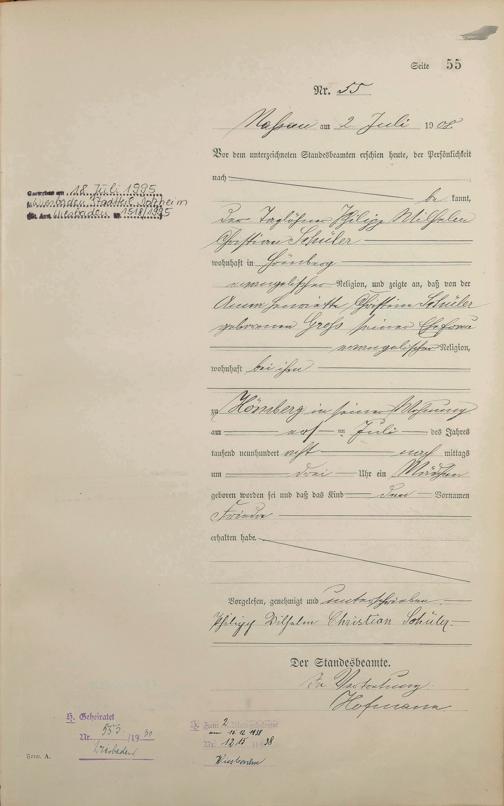 Seite 55
Nr. 55
Nassau am 2 Juli 1908
Vor dem unterzeichneten Standesbeamten erschien heute, der Persönlichkeit
nach
be kannt,
der Taglöhner Philipp Wilhelm
Christian Schüler
wohnhaft in Hömberg
evangelischer Religion, und zeigte an, daß von der
Anna Henriette Christine Schüler
geborenen Groß seiner Ehefrau
evangelischer Religion,
wohnhaft bei ihm
zu Hömberg in seiner Wohnung
am Juli des Jahres
tausend neunhundert acht nach mittags
um drei Uhr ein Mädchen
geboren worden sei und daß das Kind den Vornamen
Frieda
erhalten habe.
Vorgelesen, genehmigt und unterschrieben
Philipp Wilhelm Christian Schüler
Der Standesbeamte.
In Vertretung
Hofmann
Gestorben am 18. Juli 1995
Wiesbaden
Wiesbaden Nr. 1518/1995
H. Geheiratet
Nr. 553/1930
Wiesbaden
2
am 10.12.1938
Nr. 1215 1938
Wiesbaden
Form. A.